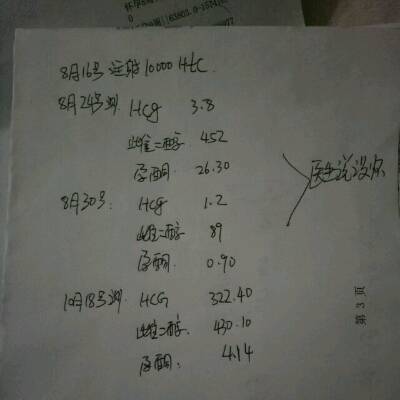 8月16号 注射 10000 HCC
8月24号测 HCg 3.8
雌二醇 452
孕酮 26.30
医生说没怀
8月30号: HCg 1.2
雌二醇 89
孕酮 0.90
10月18号测 HCG 322.40
雌二醇 430.10
孕酮: 4.14
第 3 页